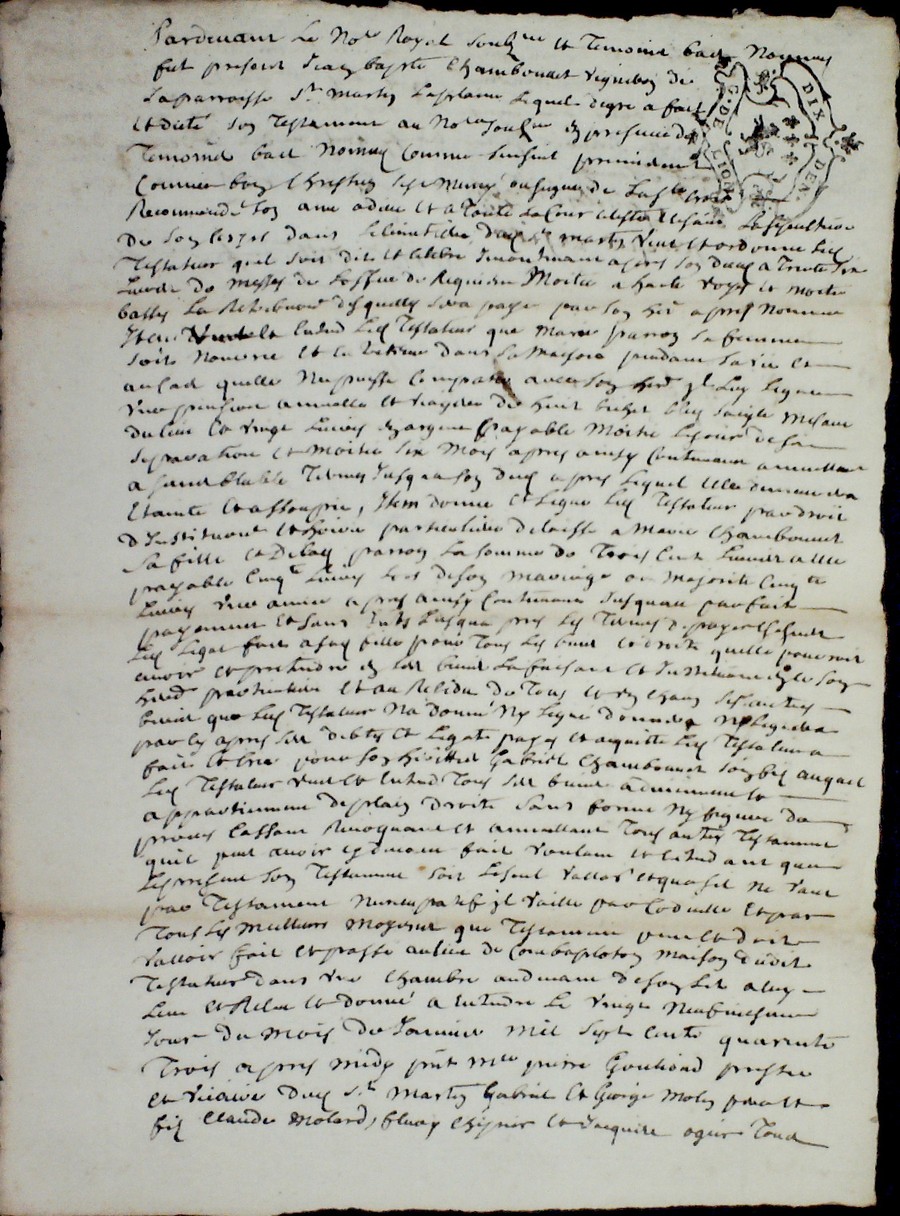 Pardevant Le Not Royal soubz.ne et Temoins bas Nommes
fut present Jean baptiste Chambonnet vigneron de
La parroisse St martin La plaine Lequel de gre a fait
et dicté son Testament au No.re souz.ne en presence des
Temoins bas Nommes comme sensuit premierement
G. DE LION DIX DEN.
Comme bon Chrestien sest muny du signe de La Ste croix
Recommandé son ame a dieu et a toute La Cour celeste
de son corps dans du St martin veut et ordonne Led
Testateur quil soit dit et celebré Incontinant apres son deces a
de messes de Loffice de Requiem Moitié a haute voye et moitié
basses La Retribution desquelles sera payée par son her apres Nommé
Item veut et Entend Led Testateur que Marie parron sa femme
soit Nourrie et Entretenue dans sa Maison pendant sa vie et
au cas quelle Ne puisse Compatir avec son her.r Il Luy Legue
une pension annuelle et viagere de huit bichet bled seigle mesure
du lieu et vingt Livres en argent payable Moitié Le jour de sa
separation et Moitié six Mois apres ainsy Continuant annuellement
a semblable Termes Jusqua son deces apres Lequel Elle demeurera
Etainte et assoupie, Item donne et Legue Led Testateur par droit
d'Institution et hoirie particuliere delaisse a Marie Chambonnet
sa fille et de lad parron La somme de Trois Cent Livres a Elle
payable Cinq.te Livres Lors de son mariage ou Majorité Cinq.te
Livres une année apres ainsy Continuant Jusquau parfait
payement et sans Int.ts Jusqua pres Les Termes de payer
Led Legat fait a sad fille pour Tous Les biens et droits quelle pourroit
avoir et pretendre en ses biens La faisant et Instituant en ce son
her.re particuliere Et au Residu de Tous et un chacun ses autres
biens que Led Testateur Na donné Ny Legué donnera Ny Leguera
par cy apres ses debtes et Legats payés et acquittés Led Testateur a
fait et créé pour son heritier Gabriel Chambonnet son fils auquel
Led Testateur veut et Entend Tous ses biens adviennent et
appartiennent de plain droit sans forme Ny figure de
procès Cassant Revoquant et annullant Tous autres Testament
quil peut avoir cy devant fait voulant et Entendant que
Le present son Testament soit Le seul vallable et que sil Ne vaut
par Testament Nuncupatif Il vaille par Codicille Et par
Tous Les Meilleurs Moyens que Testament peut et doit
valloir fait et passé au lieu de Combeplotton Maison dudit
Testateur dans une chambre au devant de son Lit a luy
Leu et Releu et donné a Entendre Le vingt Neufviesme
Jour du Mois de Janvier Mil sept Cents quarente
Trois apres midy p.nt M.re pierre Goutiond prestre
et vicaire dud St Martin Gabriel et George Molin pere et
fils Claude Molard, fleury et Jacques ogier Tous